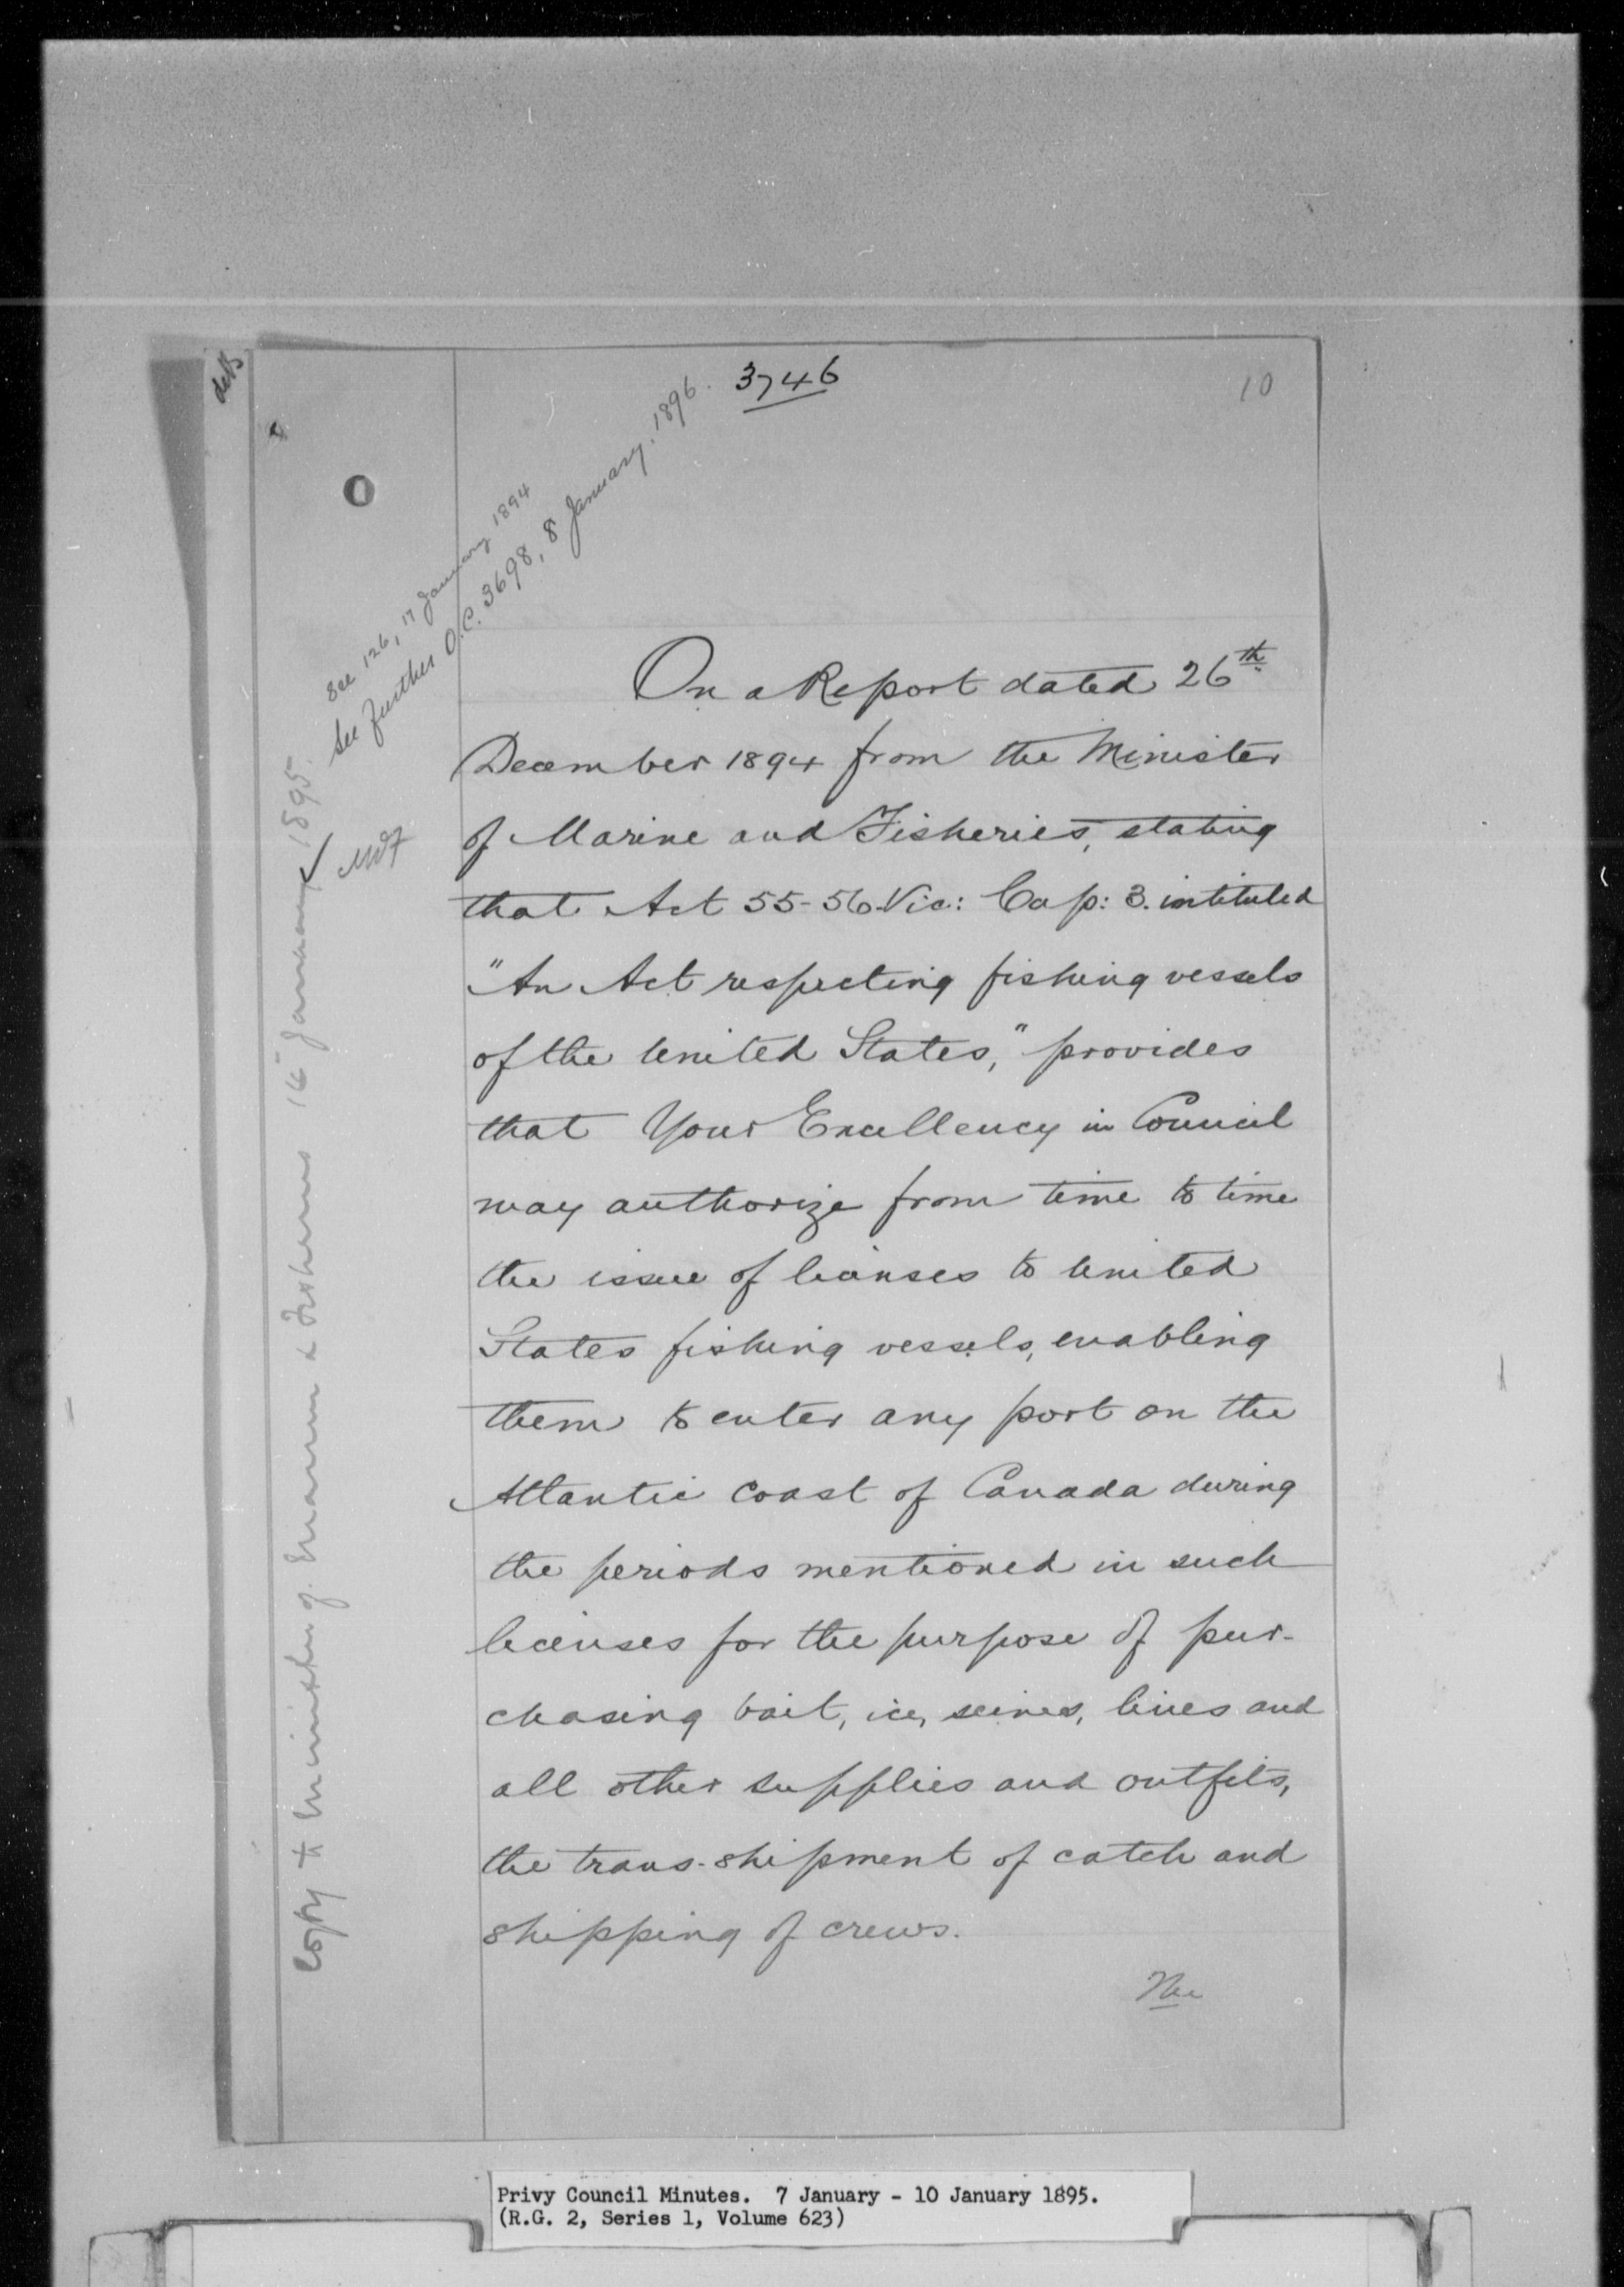 3746
10
See 126, 17 January 1894
See further O.C. 3698, 8 January, 1896.
Copy to Minister of Marine & Fisheries 16 January 1895.
On a Report dated 26th
December 1894 from the Minister
of Marine and Fisheries, stating
that Act 55-56 Vic: Cap: 3. intituled
"An Act respecting fishing vessels
of the United States," provides
that Your Excellency in Council
may authorize from time to time
the issue of licenses to United
States fishing vessels, enabling
them to enter any port on the
Atlantic Coast of Canada during
the periods mentioned in such
licenses for the purpose of pur-
chasing bait, ice, seines, lines and
all other supplies and outfits,
the trans-shipment of catch and
shipping of crews.
The
Privy Council Minutes. 7 January - 10 January 1895.
(R.G. 2, Series 1, Volume 623)